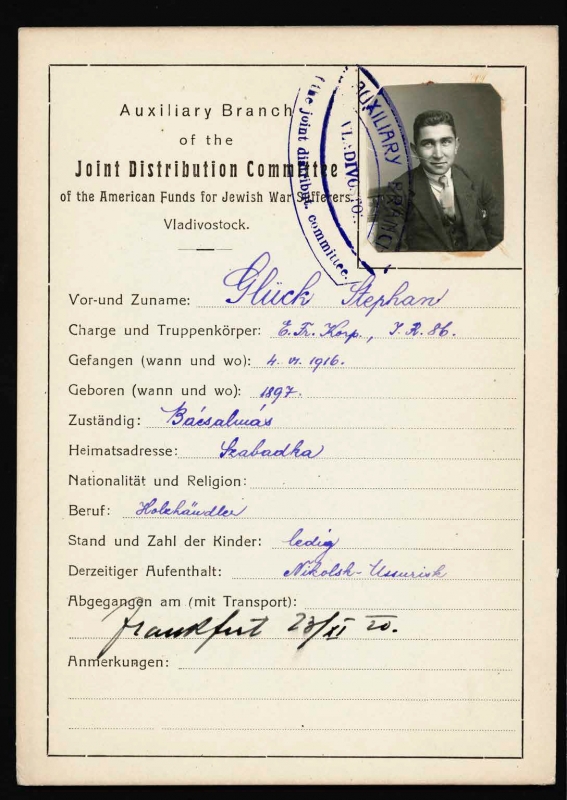 Auxiliary Branch
of the
Joint Distribution Committee
of the American Funds for Jewish War Sufferers.
Vladivostock.
AUXILIARY BRANCH
VLADIVOSTOK
(the joint distribut. committee.
Vor-und Zuname: Glück Stephan
Charge und Truppenkörper: E. Fr. Korp., I. R. 86.
Gefangen (wann und wo): 4. VI. 1916.
Geboren (wann und wo): 1897.
Zuständig: Bácsalmás
Heimatsadresse: Szabadka
Nationalität und Religion:
Beruf: Holzhändler
Stand und Zahl der Kinder: ledig
Derzeitiger Aufenthalt: Nikolsk-Ussurisk
Abgegangen am (mit Transport):
Frankfurt 23/XI 20.
Anmerkungen: